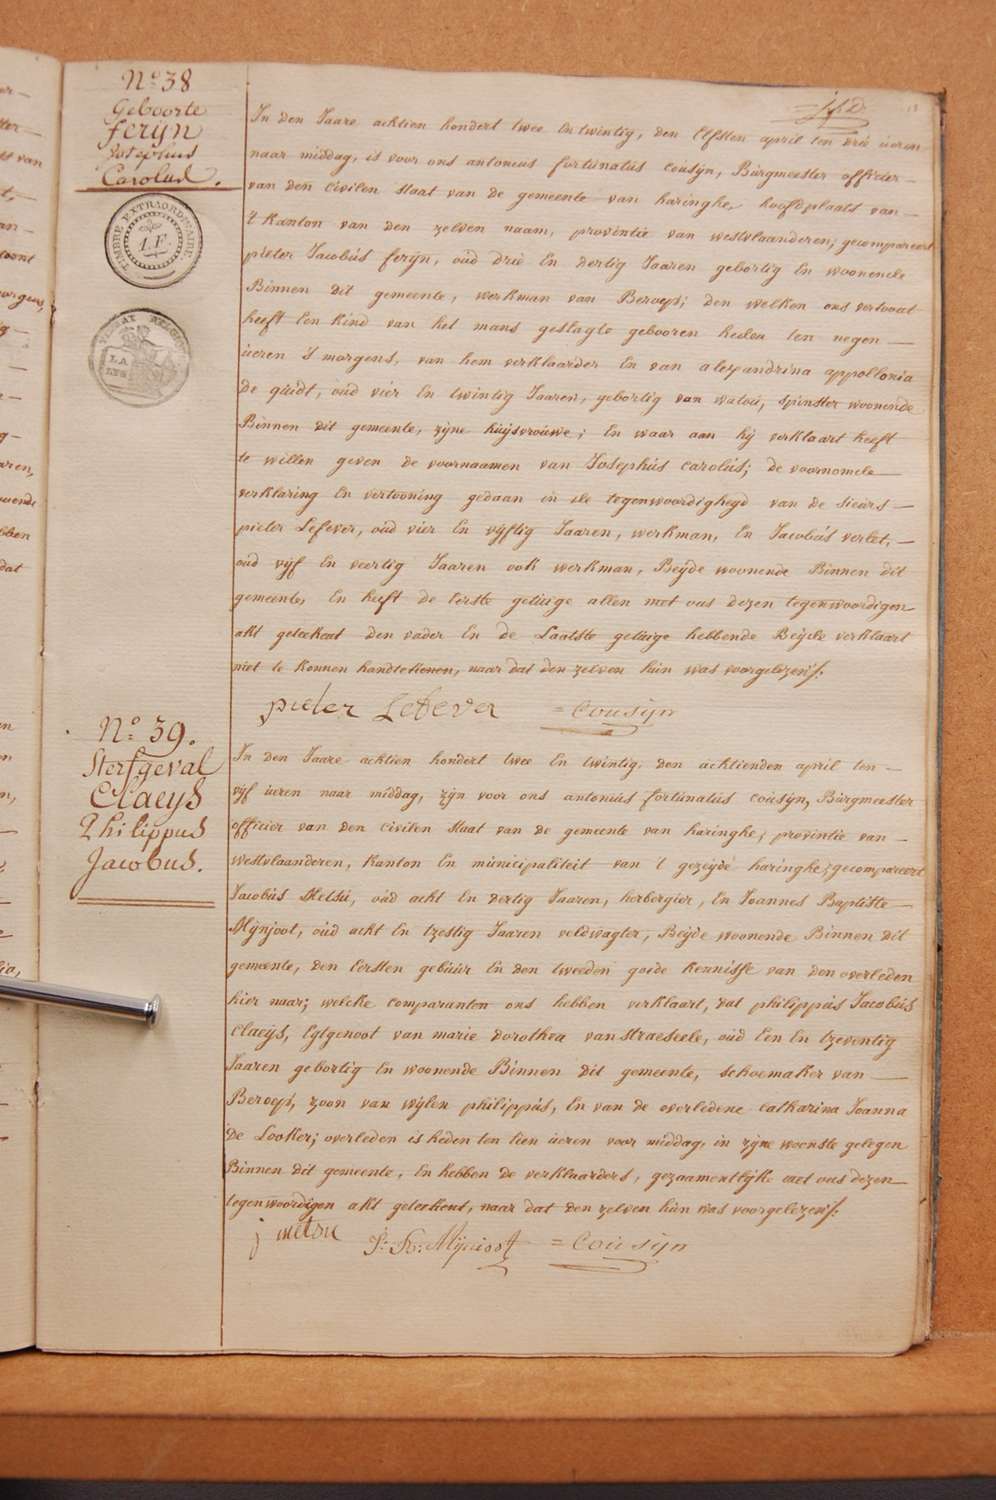 N.o 38
Geboorte
feryn
Josephus
Carolus.
TIMBRE EXTRAORDINAIRE
1.F.
In den Jaare achtien hondert twee En twintig, den Elfsten april ten drie ueren
naar middag, is voor ons antonius fortunatus cousijn, Burgmeester officier
van den civilen staat van de gemeente van haringhe, hoofdplaats van
't kanton van den zelven naam, provintie van westvlaanderen; gecompareert
pieter Jacobus feryn, oud drie En dertig Jaaren gebortig En woonende
Binnen dit gemeente, werkman van Beroep; den welken ons vertoont
heeft Een kind van het mans geslagte gebooren heden ten negen
ueren 's morgens, van hem verklaarder En van alexandrina appollonia
De guidt, oud vier En twintig Jaaren, gebortig van watou, spinster woonende
Binnen dit gemeente, zijne huijsvrouwe; En waar aan hij verklaart heeft
te willen geven de voornaamen van Josephus carolus; de voornomele
verklaring En vertooning gedaan in de tegenwoordigheyd van de sieurs
pieter Lefever, oud vier En vijftig Jaaren, werkman, En Jacobus verlet,
oud vijf En veertig Jaaren ook werkman, Beijde woonende Binnen dit
gemeente, En heeft de Eerste getuige allen met ons dezen tegenwoordigen
akt geteekent den vader En de Laatste getuige hebbende Beijde verklaart
niet te konnen handteekenen, naar dat den zelven hun was voorgelezen.
pieter Lefever = Cousijn
N.o 39.
Sterfgeval
Claeys
Philippus
Jacobus.
In den Jaare achtien hondert twee En twintig, den achtienden april ten
vijf ueren naar middag, zijn voor ons antonius fortunatus cousijn, Burgmeester
officier van den civilen staat van de gemeente van haringhe, provintie van
westvlaanderen, kanton En municipaliteit van 't gezeijde haringhe; gecompareert
Jacobus Metsu, oud acht En dertig Jaaren, herbergier, En Joannes Baptiste
Mijnjoot, oud acht En tzestig Jaaren veldwagter, Beijde woonende Binnen dit
gemeente, den Eersten gebuur En den tweeden goede kennisse van den overleden
hier naar; welcke comparanten ons hebben verklaart, dat philippus Jacobus
Claeys, Egtgenoot van marie dorothea van straeseele, oud Een En tzeventig
Jaaren gebortig En woonende Binnen dit gemeente, schoemaker van
Beroep, zoon van wijlen philippus, En van de overledene catharina Joanna
De Looker; overleden is heden ten tien ueren voor middag, in zijne woenste gelegen
Binnen dit gemeente, En hebben de verklaarders, gezaamentlijke met ons dezen
tegenwoordigen akt geteekent, naar dat den zelven hun was voorgelezen.
j metsu J: B: Mijnioot = Cousijn